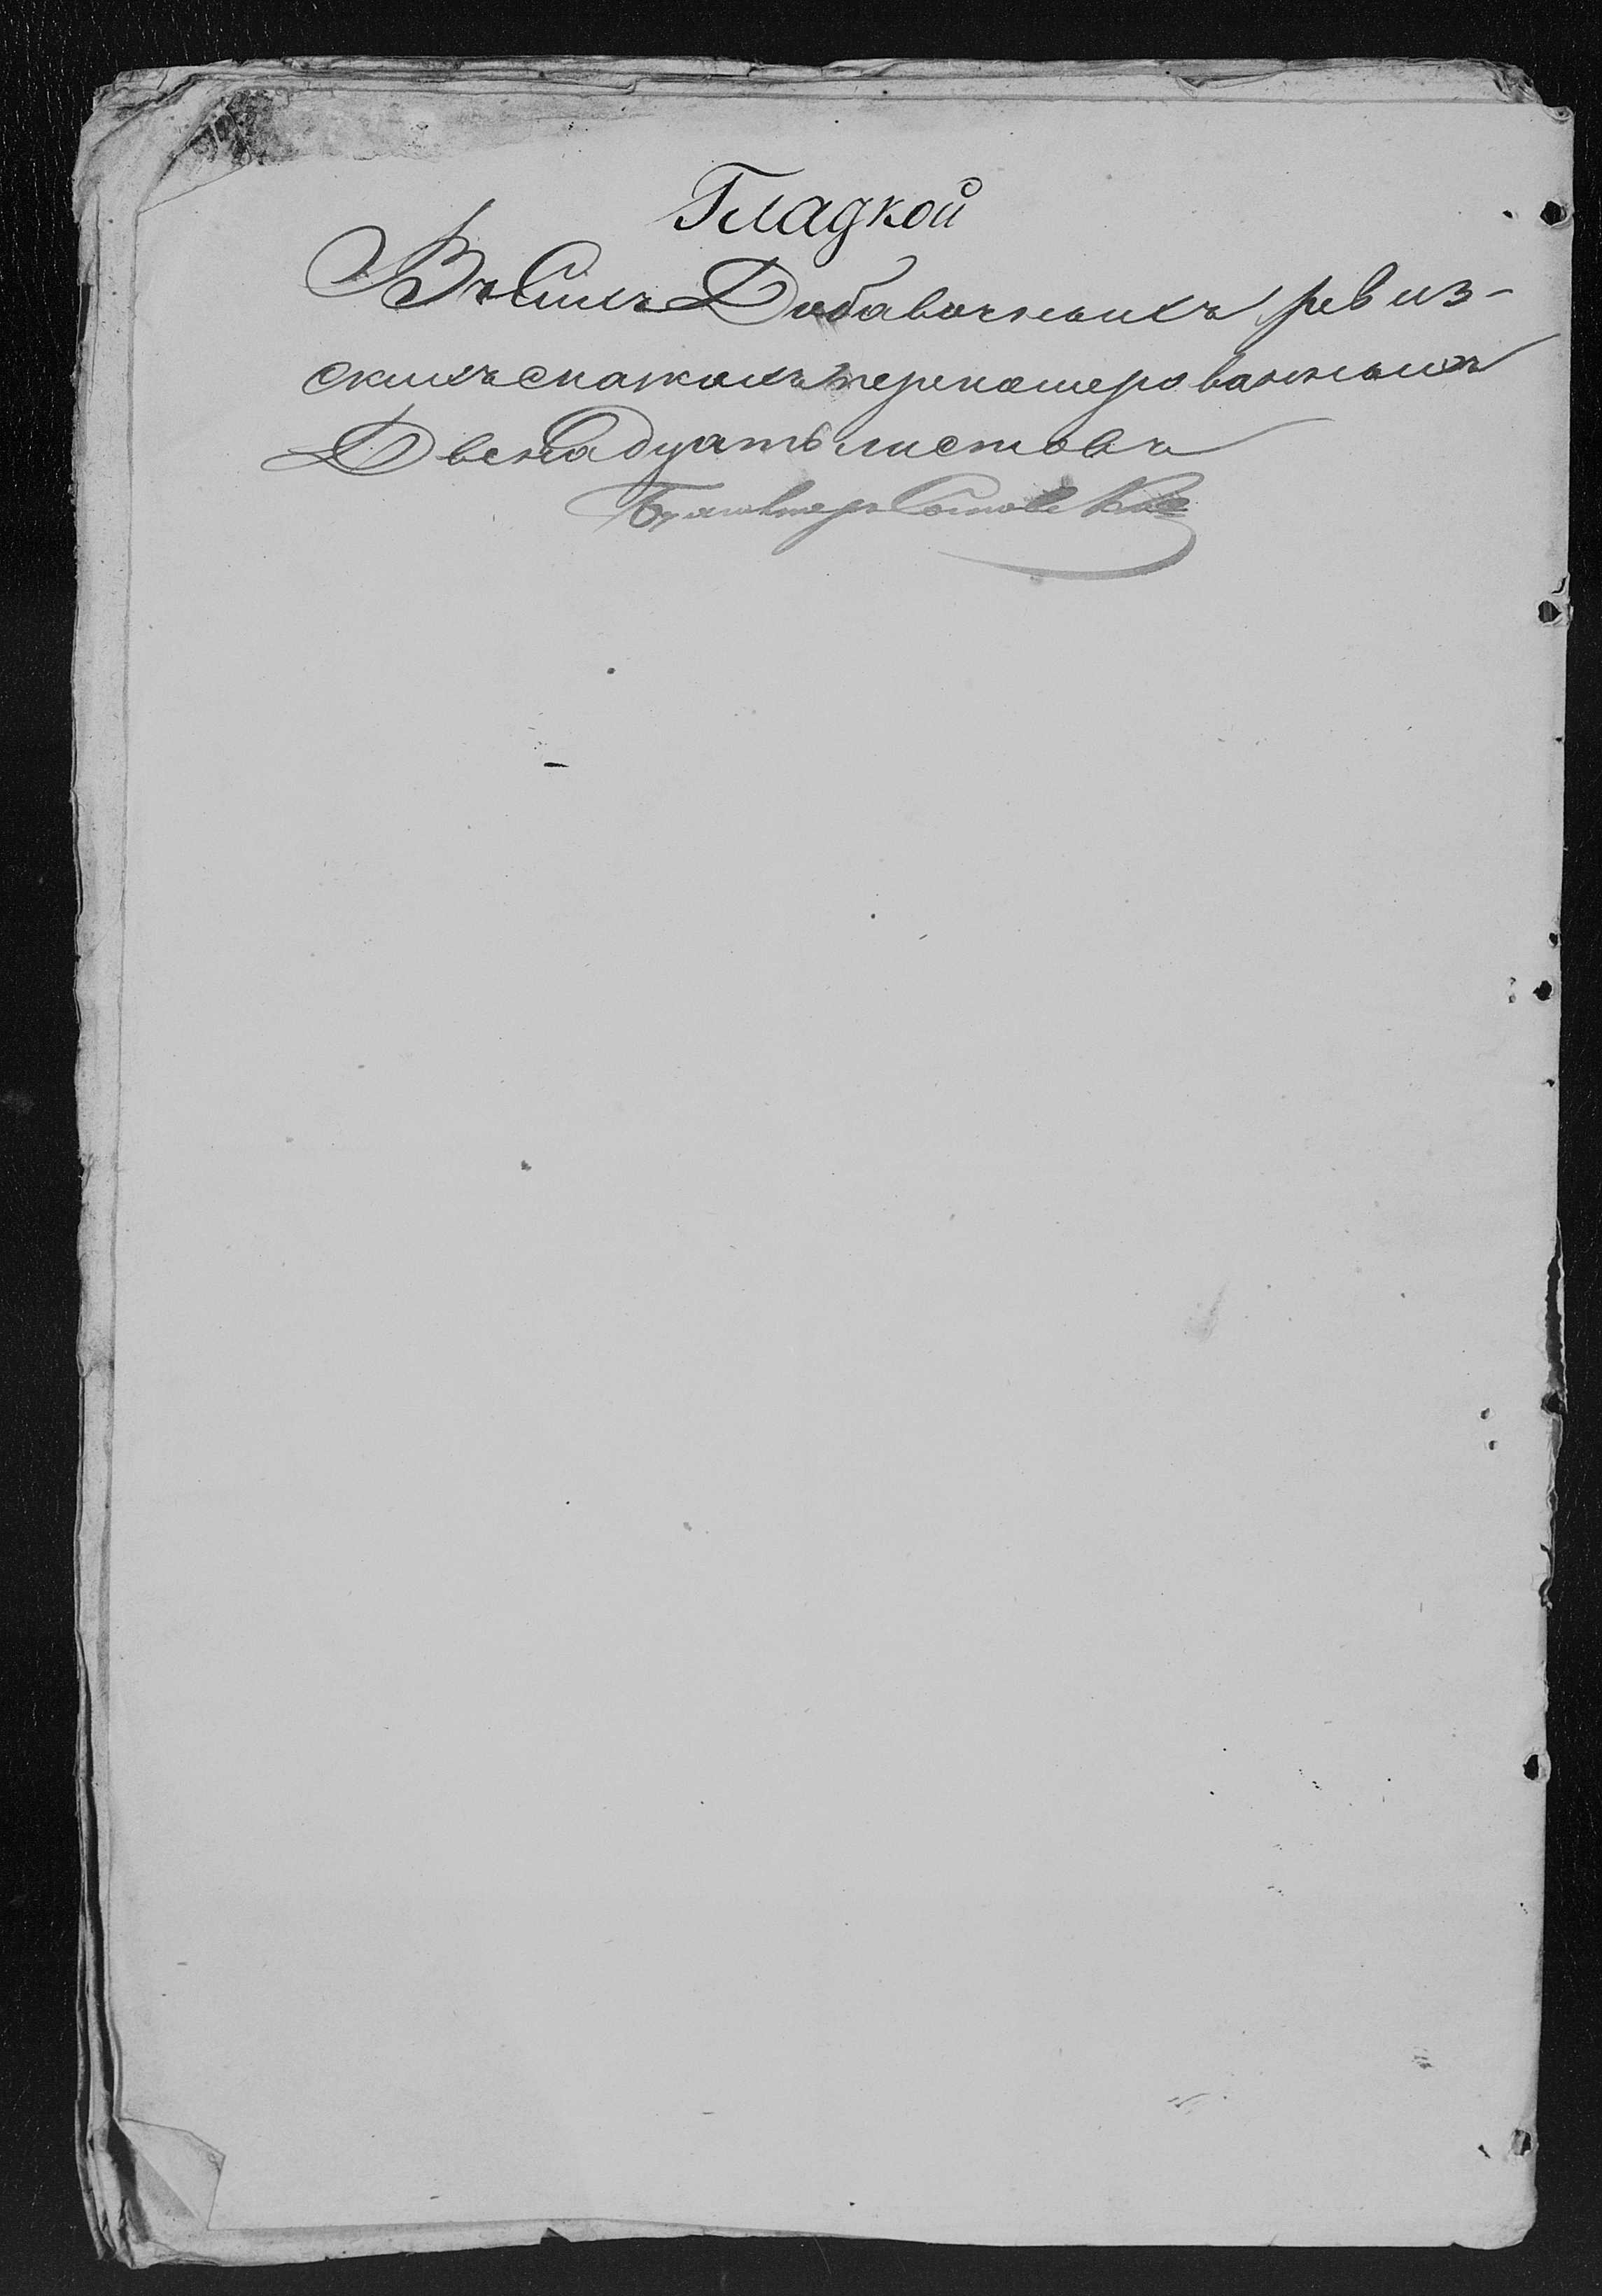 Гладкой
Въ Сихъ Добавочныхъ ревиз-
скихъ сказкахъ переномерованныхъ
Двенадцать листовъ
Бухгалтеръ